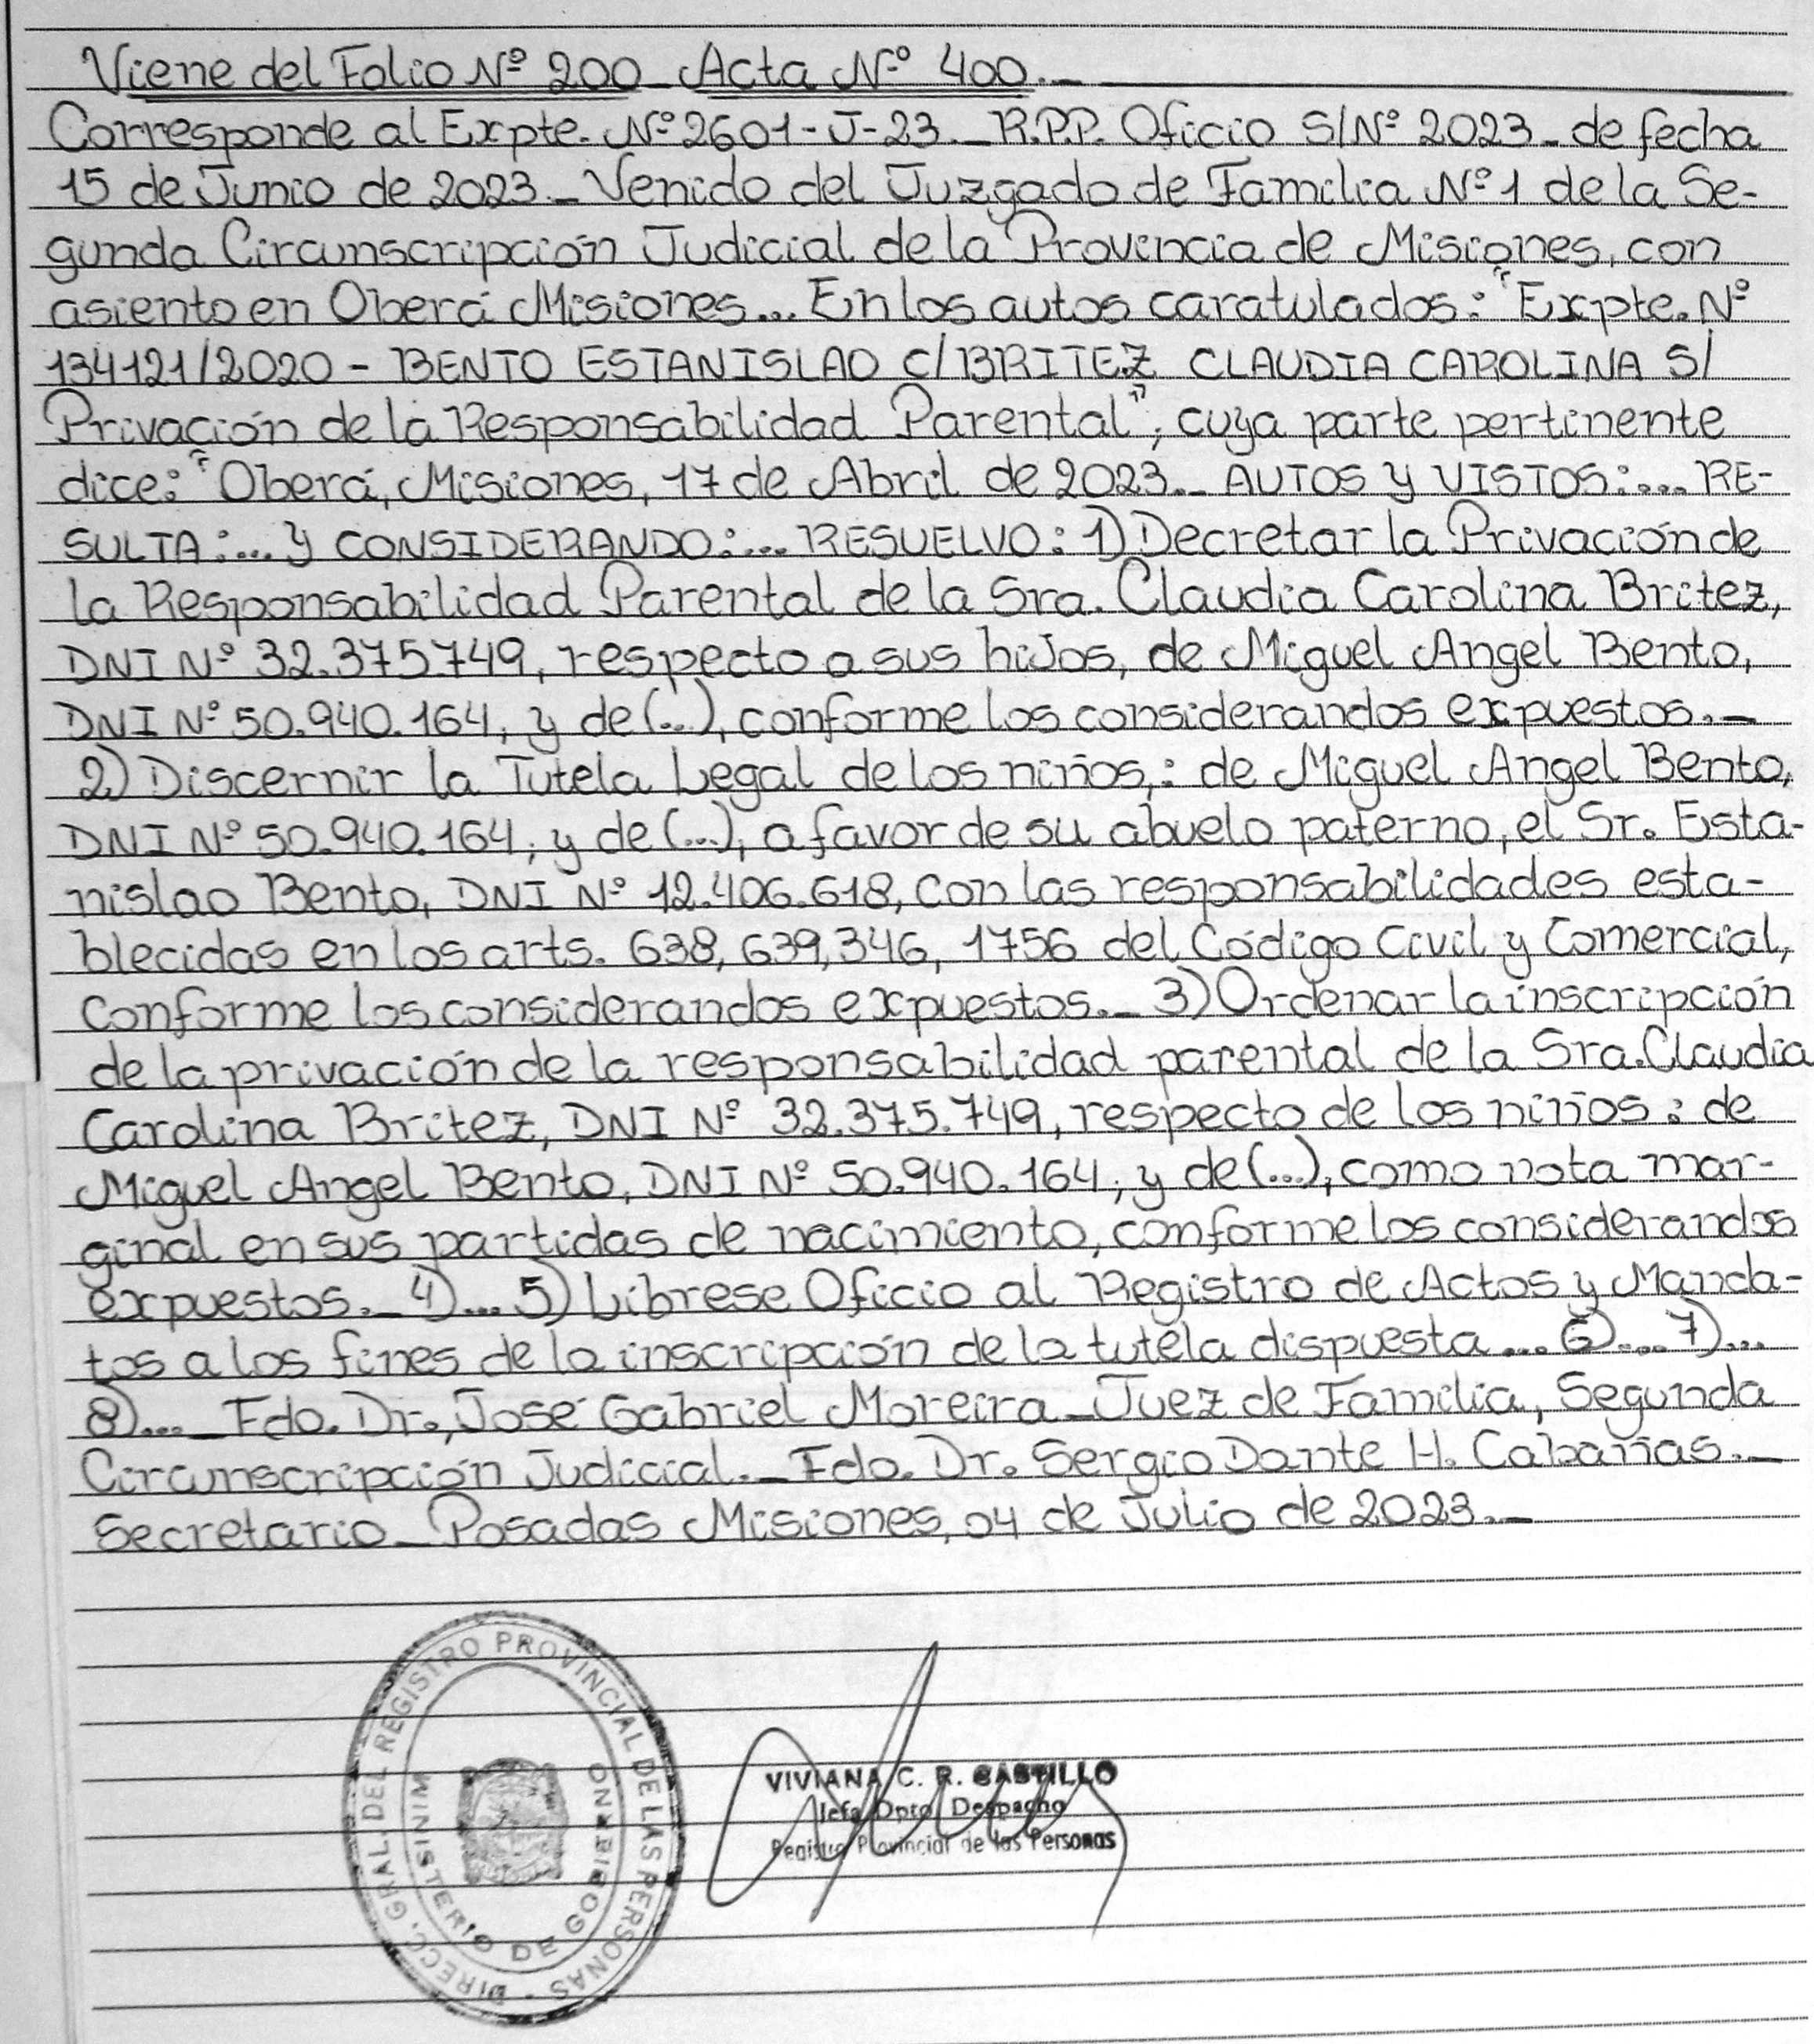 Viene del Folio Nº 200 - Acta Nº 400.-
Corresponde al Expte. Nº 2601-J-23.- R.P.P. Oficio S/Nº 2023.- de fecha
15 de Junio de 2023.- Venido del Juzgado de Familia Nº 1 de la Se-
gunda Circunscripción Judicial de la Provincia de Misiones, con
asiento en Oberá Misiones... En los autos caratulados: "Expte. Nº
134121/2020 - BENTO ESTANISLAO C/BRITEZ CLAUDIA CAROLINA S/
Privación de la Responsabilidad Parental", cuya parte pertinente
dice: "Oberá, Misiones, 17 de Abril de 2023.- AUTOS Y VISTOS:... RE-
SULTA:... Y CONSIDERANDO:... RESUELVO: 1) Decretar la Privación de
la Responsabilidad Parental de la Sra. Claudia Carolina Britez,
DNI Nº 32.375.749, respecto a sus hiJos, de Miguel Angel Bento,
DNI Nº 50.940.164, y de (...), conforme los considerandos expuestos.-
2) Discernir la Tutela Legal de los niños,: de Miguel Angel Bento,
DNI Nº 50.940.164; y de (...), a favor de su abuelo paterno, el Sr. Esta-
nislao Bento, DNI Nº 12.406.618, con las responsabilidades esta-
blecidas en los arts. 638, 639, 346, 1756 del Código Civil y Comercial,
conforme los considerandos expuestos.- 3) Ordenar la inscripción
de la privación de la responsabilidad parental de la Sra. Claudia
Carolina Britez, DNI Nº 32.375.749, respecto de los niños: de
Miguel Angel Bento, DNI Nº 50.940.164; y de (...), como nota mar-
ginal en sus partidas de nacimiento, conforme los considerandos
expuestos.- 4)... 5) Librese Oficio al Registro de Actos y Manda-
tos a los fines de la inscripción de la tutela dispuesta... 6)... 7)...
8)... - Fdo. Dr., José Gabriel Moreira - Juez de Familia, Segunda
Circunscripción Judicial.- Fdo. Dr. Sergio Dante H. Cabañas.-
Secretario - Posadas Misiones, 04 de Julio de 2023.-
DIRECC. GRAL. DEL REGISTRO PROVINCIAL DE LAS PERSONAS -
MINISTERIO DE GOBIERNO
VIVIANA C. R. CASTILLO
Jefa Dpto. Despacho
Registro Provincial de las Personas